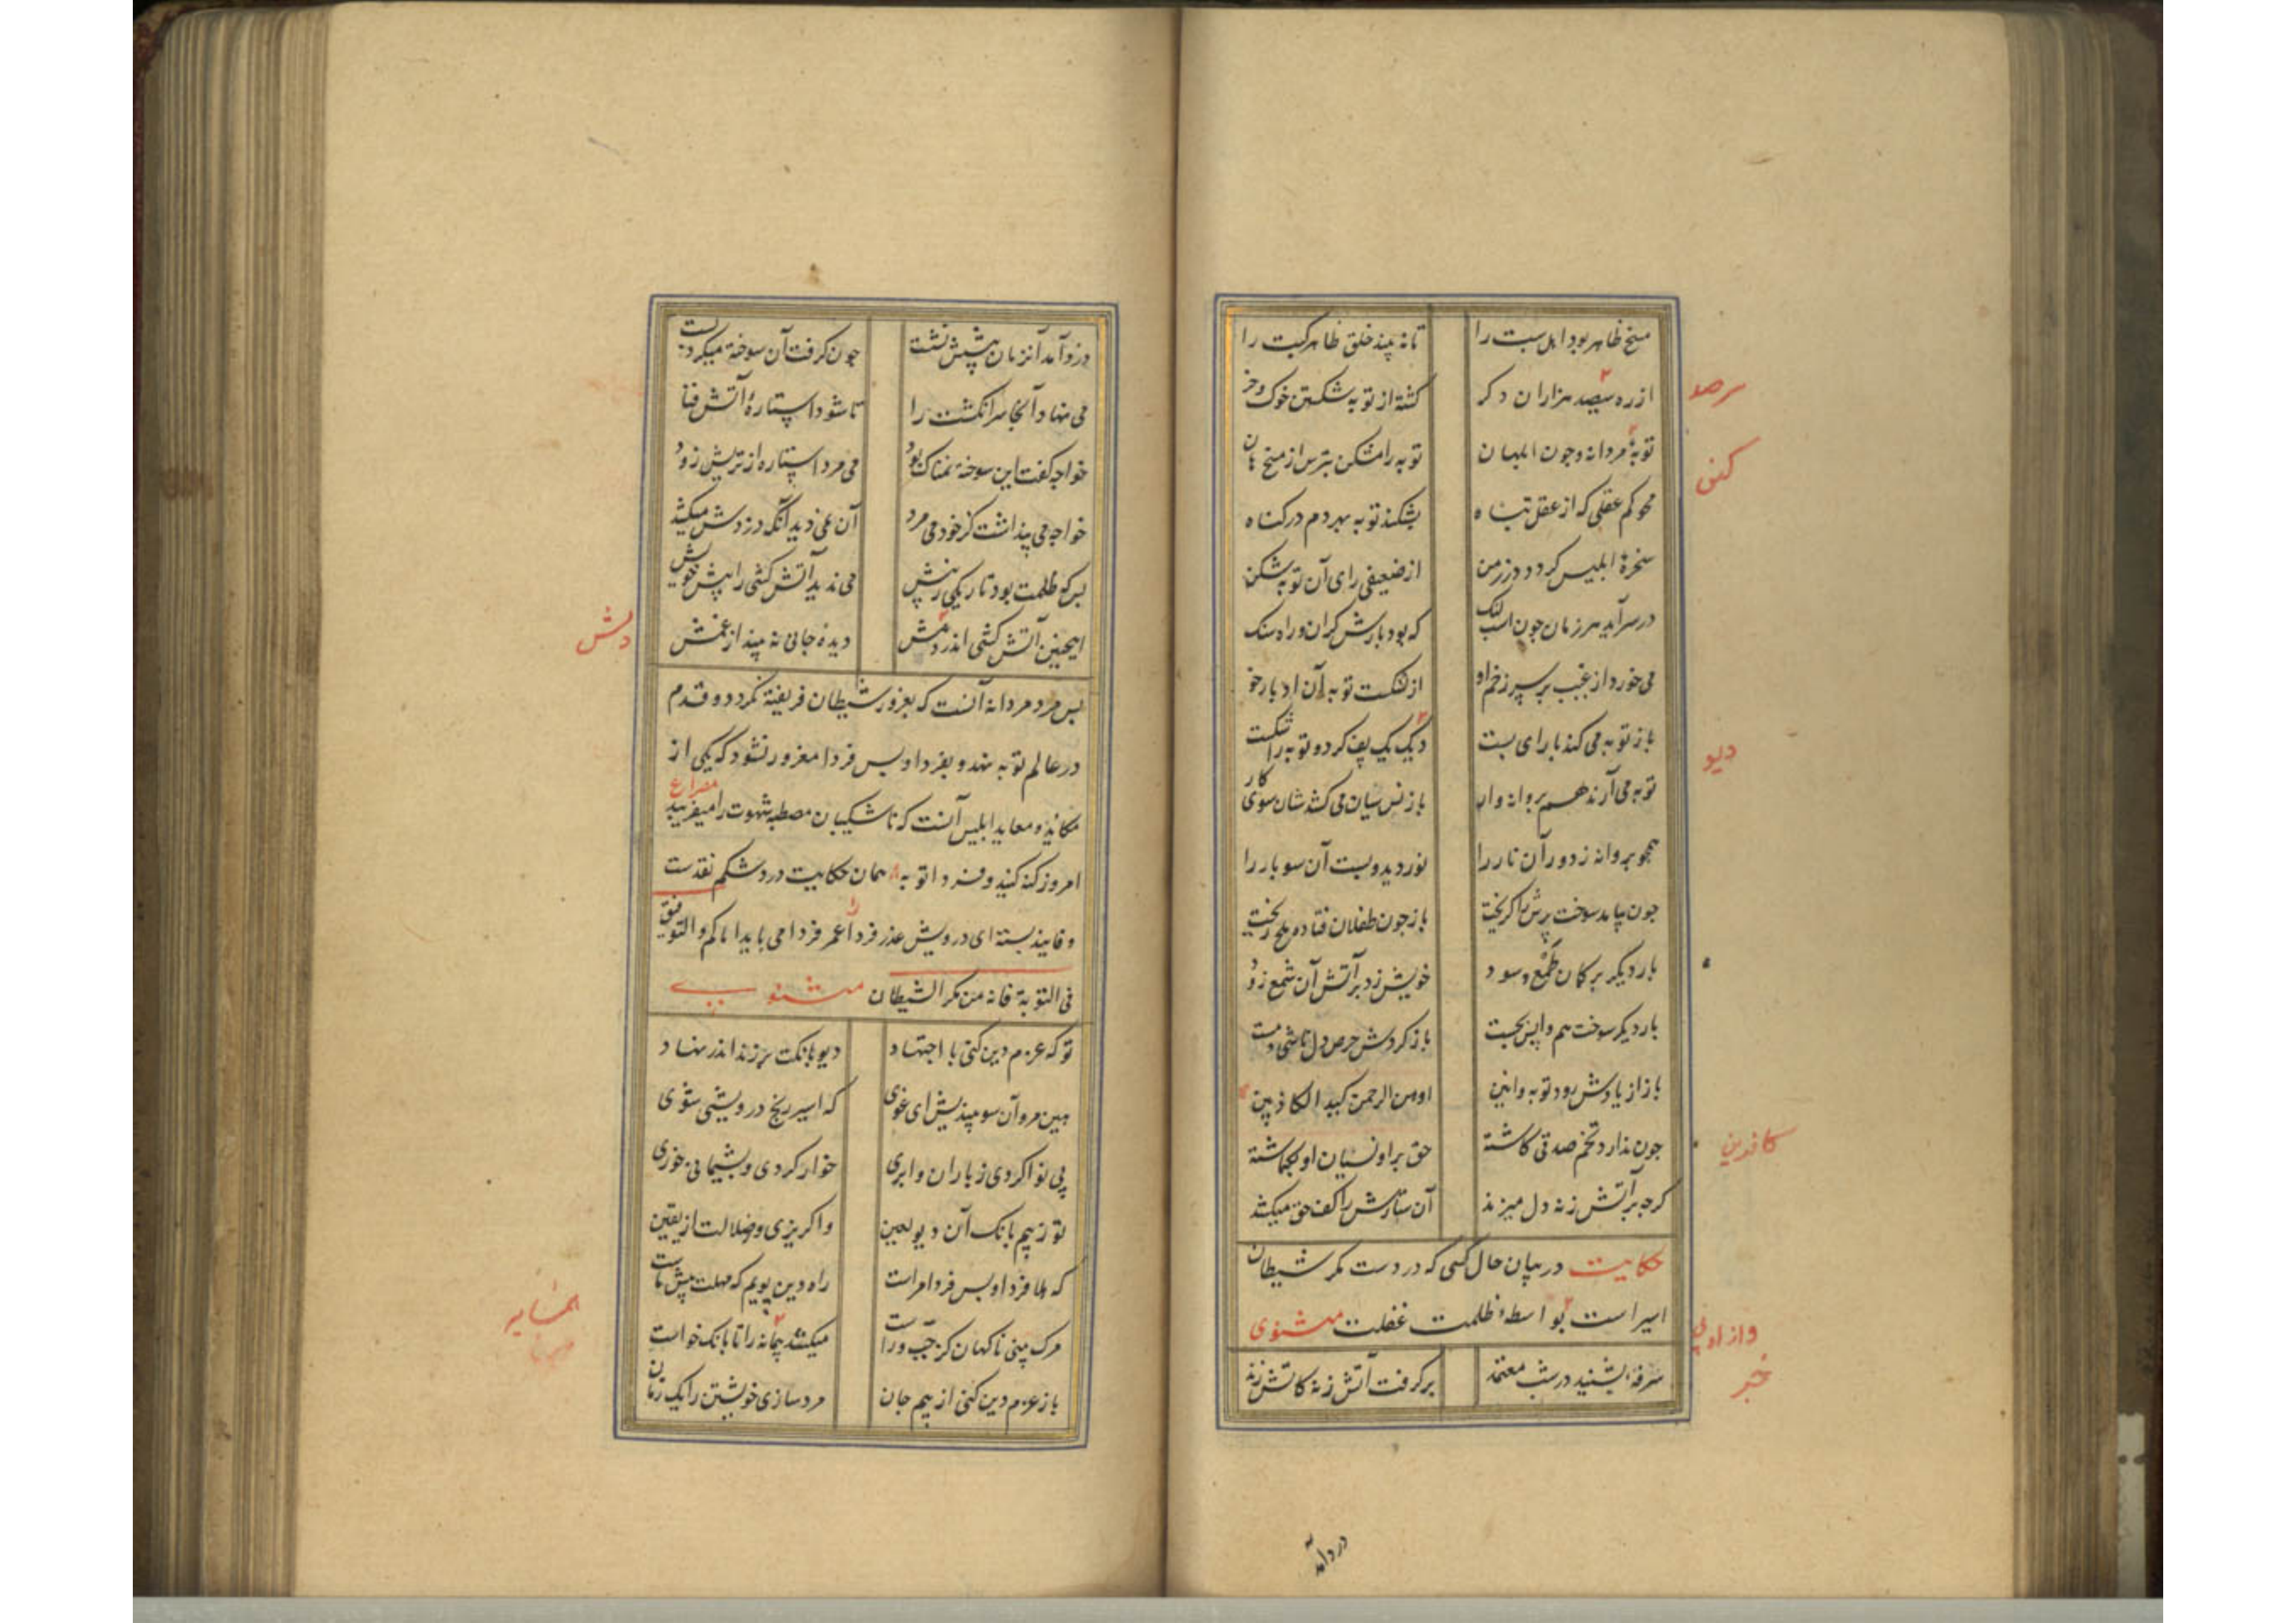 مسخ ظاهر بود اهل سبت را تا نه بیند خلق ظاهر کبت را
از ره سیصد هزاران دکر کشته از توبه شکستن خوک و خر
سرصد
توبۀ مردانه و جون ابلهان توبه را مشکن بترس از مسخ هان
کنی
همجو کم عقلی که از عقل تباه بشکند توبه بهر دم در کناه
سخرۀ ابلیس کردد در زمن از ضعیفی رای آن توبه شکن
در سر آید هر زمان جون اسب لنک که بود بارش کران و راه سنک
می خورد از غیب بر سر زخم او از شکست توبه آن ادبار خو
باز توبه می کند با رای سست دیک یک پف کرد و توبه را شکست
دیو
توبه می آرند هم پروانه وار باز نسیان می کشد شان سوی کار
همجو پروانه ز دور آن نار را نور دید و بست آن سو بار را
جون بیامد سوخت پرش را کریخت باز جون طفلان فتاد و ملح ریخت
بار دیکر بر کمان طمع و سود خویش زد بر آتش آن شمع زود
بار دیکر سوخت هم واپس بجست باز کردش حرص دل ناسی و مست
باز از یادش رود توبه و انین اوهن الرحمن کید الکاذبین
جون ندارد تخم صدقی کاشته حق بر او نسیان او بکماشته
کاذبین
کرجه بر آتش زنه دل میزند آن ستارش را کف حق میکشد
حکایت در بیان حال کسی که در دست مکر شیطان
اسیر است بواسطۀ ظلمت غفلت مثنوی
شرفۀ بشنید در شب معتمد برکرفت آتش زنه کاتش زند
خبر
درد آمد
دزد آمد آنزمان پیشش نشست جون کرفت آن سوخته میکرد پست
می نهاد آنجا سر انکشت را تا شود استارۀ آتش فنا
خواجه کفت این سوخته نمناک بود می مرد استاره از تریش زود
خواجه می پنداشت کز خود می مرد آن نمی دید آنکه دزدش میکشد
بس که ظلمت بود تاریکی ز پیش می ندید آتش کشی را پیش خویش
اینجنین آتش کشی اندر دمش دیدۀ جانی نه بیند از غمش
دلش
بس مرد مردانه آنست که بغرور شیطان فریفته نکردد و قدم
در عالم توبه نهد و بفردا و پس فردا مغرور نشود که یکی از
مکاید و معاید ابلیس آنست که ناشکیبان مصطبه شهوت را میفریبد
امروز کنه کنید و فردا توبه همان حکایت درد شکم نقدست
مصراع
و فایند بسته ای درویش عذر فردا را عمر فردا می باید اناکم و التوفیق
فی التوبة فانه من مکر الشیطان مثنوی
تو که عزم دین کنی با اجتهاد دیو بانکت بر زند اندر نهاد
هین مرو آن سو بیندیش ای غوی که اسیر رنج درویشی شوی
بی نوا کردی ز یاران وابری خوار کردی و پشیمانی خوری
تو ز بیم بانک آن دیو لعین واکریزی و ضلالت از یقین
که هلا فردا و پس فردا مراست راه دین پویم که مهلت پیش ماست
مرک بینی ناکهان کز جب و راست میکشد پیمانه را تا بانک خواست
همسایه
باز عزم دین کنی از بیم جان مرد سازی خویشتن را یک زمان